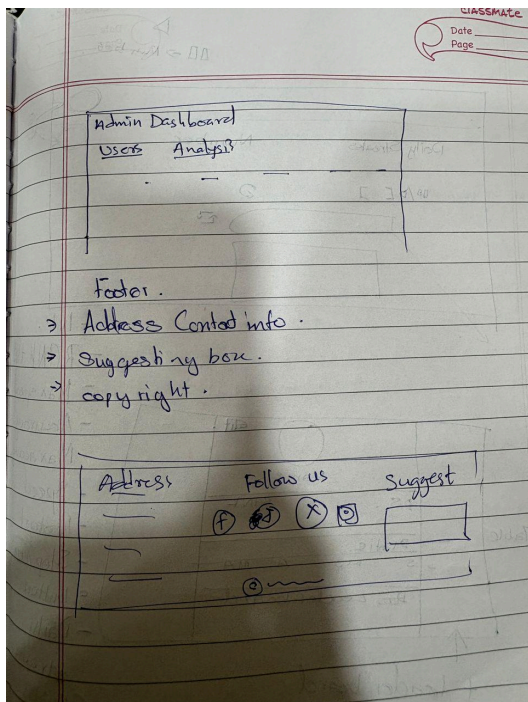 CLASSMATE
Date
Page
Admin Dashboard
Users Analysis
Footer.
→ Address Contact info.
→ Suggesting box.
→ copyright.
Address Follow us Suggest
f X